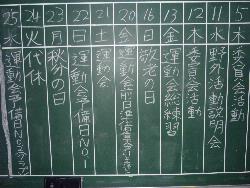 11 木 委員会活動
12 金 野外活動説明会
13 金 運動会総練習
16 月 敬老の日
20 金 運動会前日準備
21 土 運動会
22 日 運動会予備日NO.1
23 月 秋分の日
24 火 代休
25 水 運動会予備日NO.2